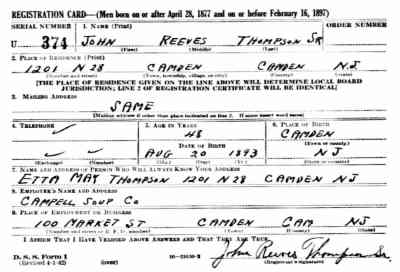 REGISTRATION CARD—(Men born on or after April 28, 1877 and on or before February 16, 1897)
SERIAL NUMBER 1. NAME (Print) ORDER NUMBER
U 374 JOHN REEVES THOMPSON SR
(First) (Middle) (Last)
2. PLACE OF RESIDENCE (Print)
1201 N 28 CAMDEN CAMDEN NJ
(Number and street) (Town, township, village, or city) (County) (State)
[THE PLACE OF RESIDENCE GIVEN ON THE LINE ABOVE WILL DETERMINE LOCAL BOARD
JURISDICTION; LINE 2 OF REGISTRATION CERTIFICATE WILL BE IDENTICAL]
3. MAILING ADDRESS
SAME
[Mailing address if other than place indicated on line 2. If same insert word same]
4. TELEPHONE 5. AGE IN YEARS 6. PLACE OF BIRTH
48 CAMDEN
DATE OF BIRTH (Town or county)
AUG 20 1893 NJ
(Exchange) (Number) (Mo.) (Day) (Yr.) (State or country)
7. NAME AND ADDRESS OF PERSON WHO WILL ALWAYS KNOW YOUR ADDRESS
ETTA MAY THOMPSON 1201 N 28 CAMDEN NJ
8. EMPLOYER'S NAME AND ADDRESS
CAMPELL SOUP CO
9. PLACE OF EMPLOYMENT OR BUSINESS
100 MARKET ST CAMDEN CAM NJ
(Number and street or R. F. D. number) (Town) (County) (State)
I AFFIRM THAT I HAVE VERIFIED ABOVE ANSWERS AND THAT THEY ARE TRUE.
D. S. S. Form 1 John Reeves Thompson Sr.
(Revised 4-1-42) (over) (Registrant's signature)